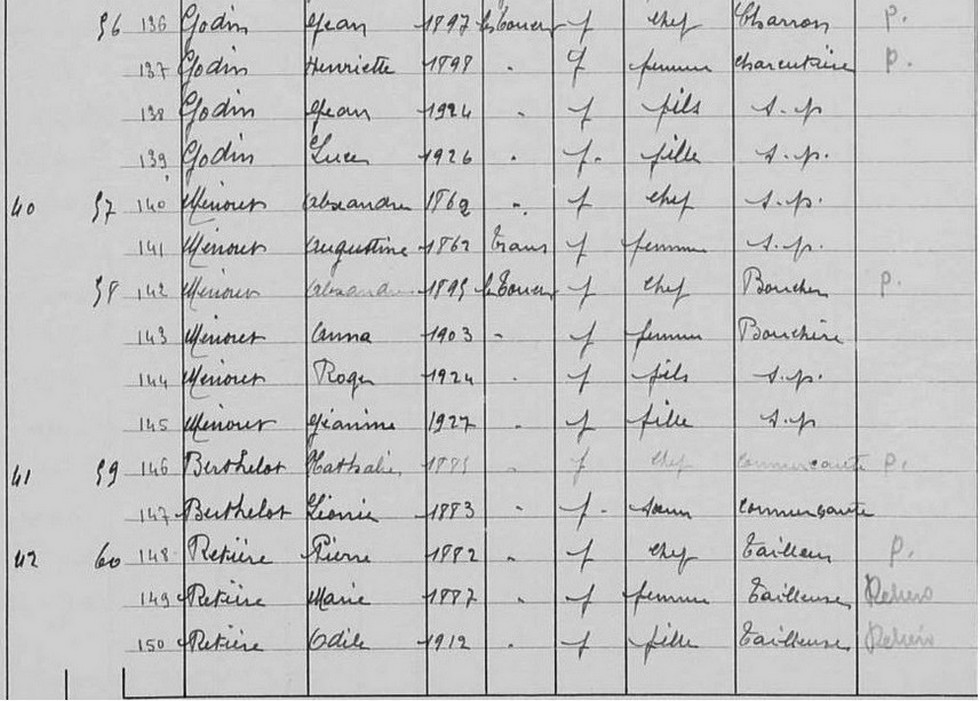 56 136 Godin Jean 1897 f chef Charron P.
137 Godin Henriette 1898 . f femme P.
138 Godin Jean 1924 . f fils s.p
139 Godin Luce 1926 . f. fille s.p.
40 57 140 Menoret Alexandre 1862 . f chef s.p.
141 Menoret Augustine 1862 Trans f femme s.p.
58 142 Menoret Alexandre 1895 f chef Boucher P.
143 Menoret Anna 1903 - f femme Bouchère
144 Menoret Roger 1924 . f fils s.p.
145 Menoret Jeanine 1927 . f fille s.p
41 59 146 Berthelot Nathalie 1885 . f chef commerçante P.
147 Berthelot Léonie 1883 . f. soeur commerçante
42 60 148 Retière Pierre 1882 . f chef Tailleur P.
149 Retière Marie 1887 . f femme Tailleuse
150 Retière Odile 1912 . f fille Tailleuse